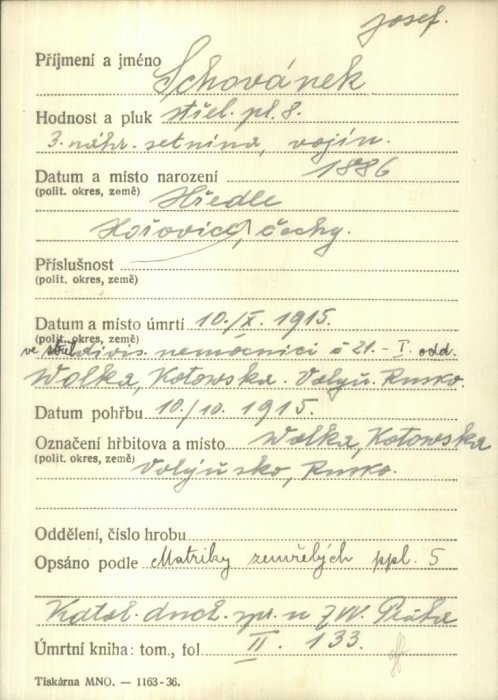 Josef.
Příjmení a jméno Schovánek
Hodnost a pluk střel. pl. 8.
3. náhr. setnina, vojín.
Datum a místo narození 1886
(polit. okres, země) Hředle
Hořovice, čechy.
Příslušnost
(polit. okres, země)
Datum a místo úmrtí 10./X. 1915.
(polit. okres, země)
ve divis. nemocnici č 21. - I. odd.
Wolka, Kotowska. Volyň. Rusko.
Datum pohřbu 10./10. 1915.
Označení hřbitova a místo Wolka, Kotowska
(polit. okres, země) Volyňsko, Rusko.
Oddělení, číslo hrobu
Opsáno podle Matriky zemřelých ppl. 5
Katol. duch. spr. u ZVV. Praha
Úmrtní kniha: tom., fol II. 133.
Tiskárna MNO. — 1163-36.